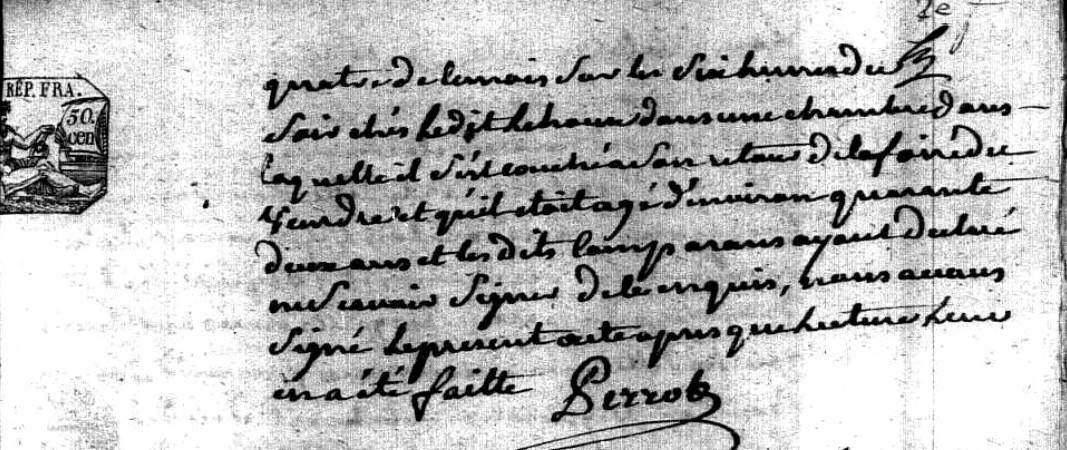 2e
RÉP. FRA.
50.
cen
quatre de le mois sur les Six heures du
Soir et dans une chambre dans
laquelle il s'est couché a son retour de la foire de
et qu'il etoit agé d'environ quarante
deux ans et les dits Comparans ayant declaré
ne Scavoir Signer de ce enquis, nous avons
Signé le present acte apres que lecture leur
en a été faitte Perrot